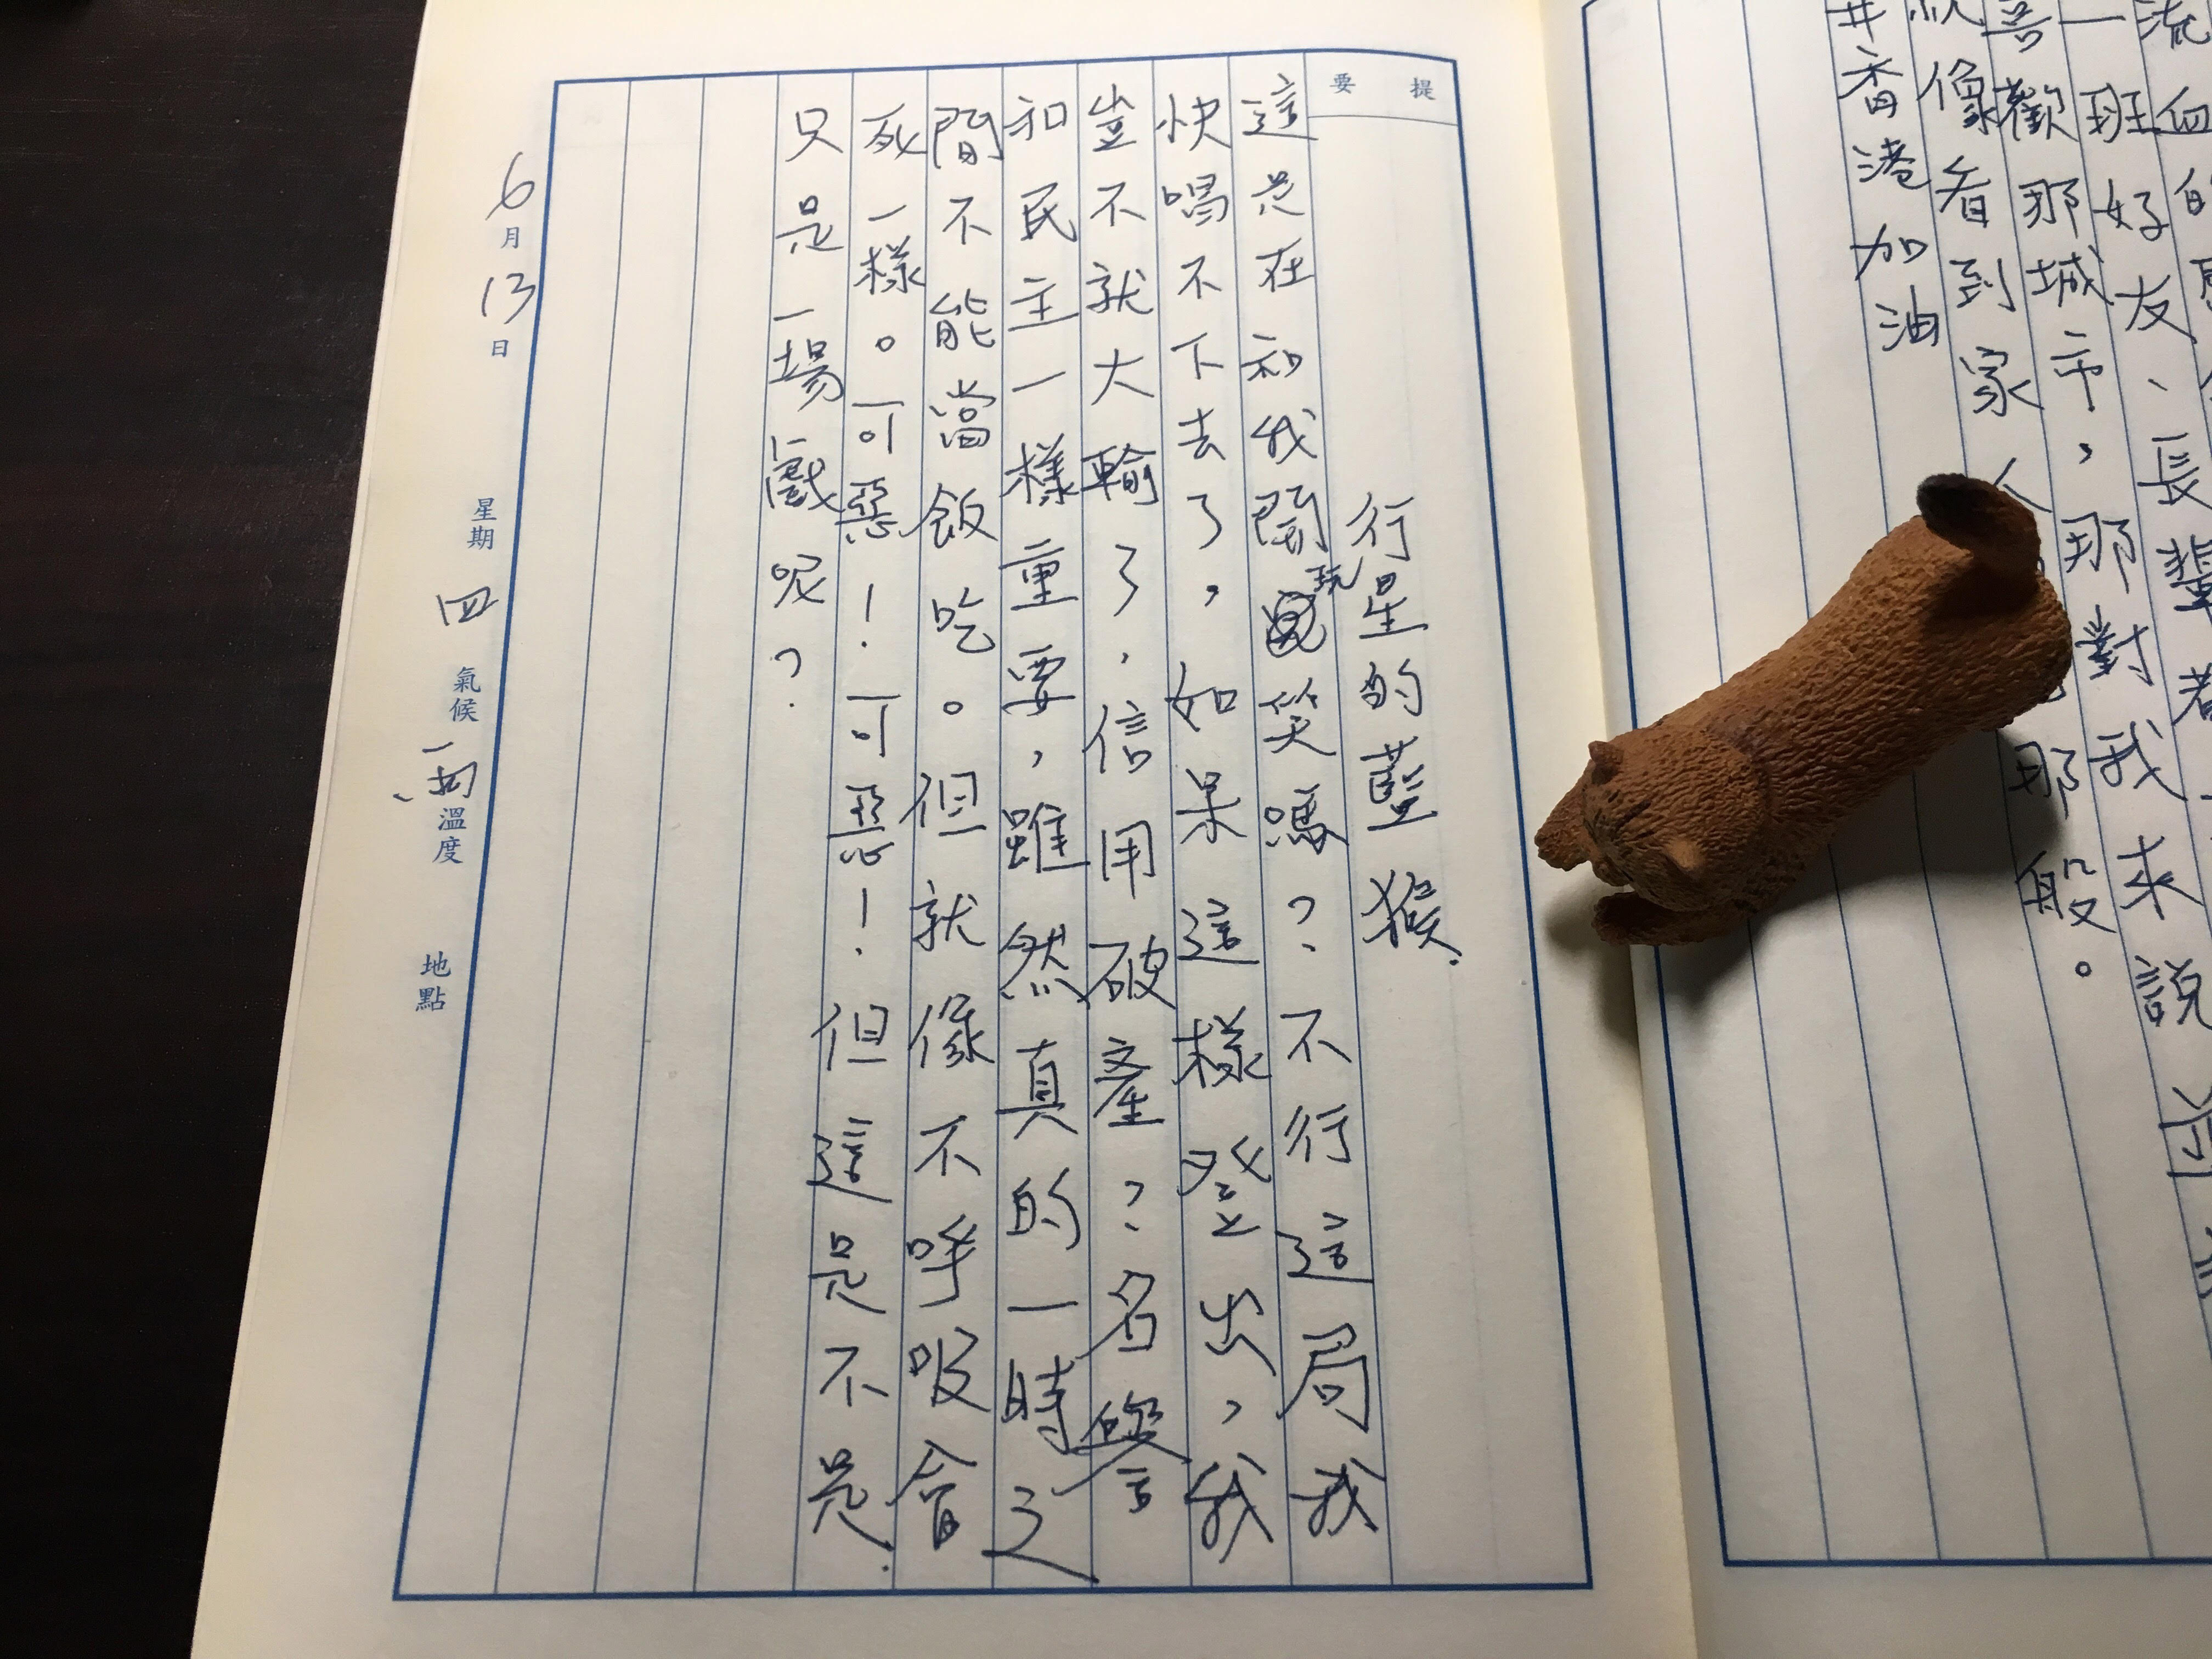 流血的
一班好友、長輩都
喜歡那城市，那對我來說
就像看到家人那般。
#香港加油
提要
行星的藍猴.
這是在和我開玩笑嗎？不行這局我
快喝不下去了，如果這樣登出，我
豈不就大輸了，信用破產？名譽
和民主一樣重要，雖然真的一時之
間不能當飯吃。但就像不呼吸會
死一樣。可惡！可惡！但這是不是.
只是一場戲呢？
6月13日 星期四 氣候雨 溫度 地點